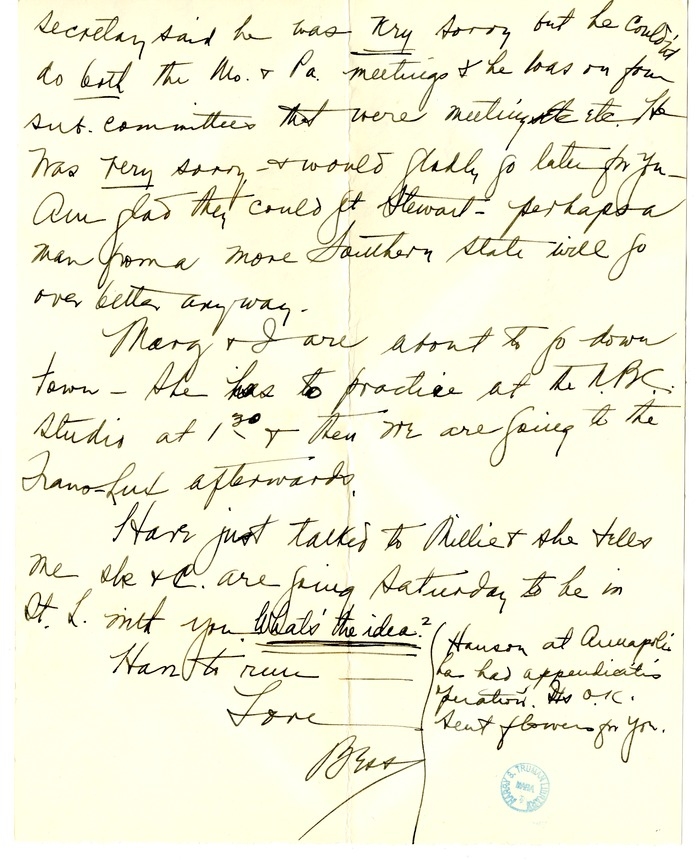 secretary said he was very sorry but he couldn't
do both the Mo. & Pa. meetings & he was on four
sub. committees that were meeting etc. He
was very sorry - & would gladly go later for you -
Am glad they could get Stewart - perhaps a
man from a more Southern state will go
over better anyway.
Marg & I are about to go down
town - she has to practice at the N.B.C.
studio at 1:30 & then we are going to the
Trans-Lux afterwards.
Have just talked to Millie & she tells
me she & C. are going Saturday to be in
St. L. with you. What's the idea?
Have to run
Love
Bess
Hanson at Annapolis
has had appendicitis
operation. Is O.K.
Sent flowers for you.
HARRY S. TRUMAN LIBRARY
NARA